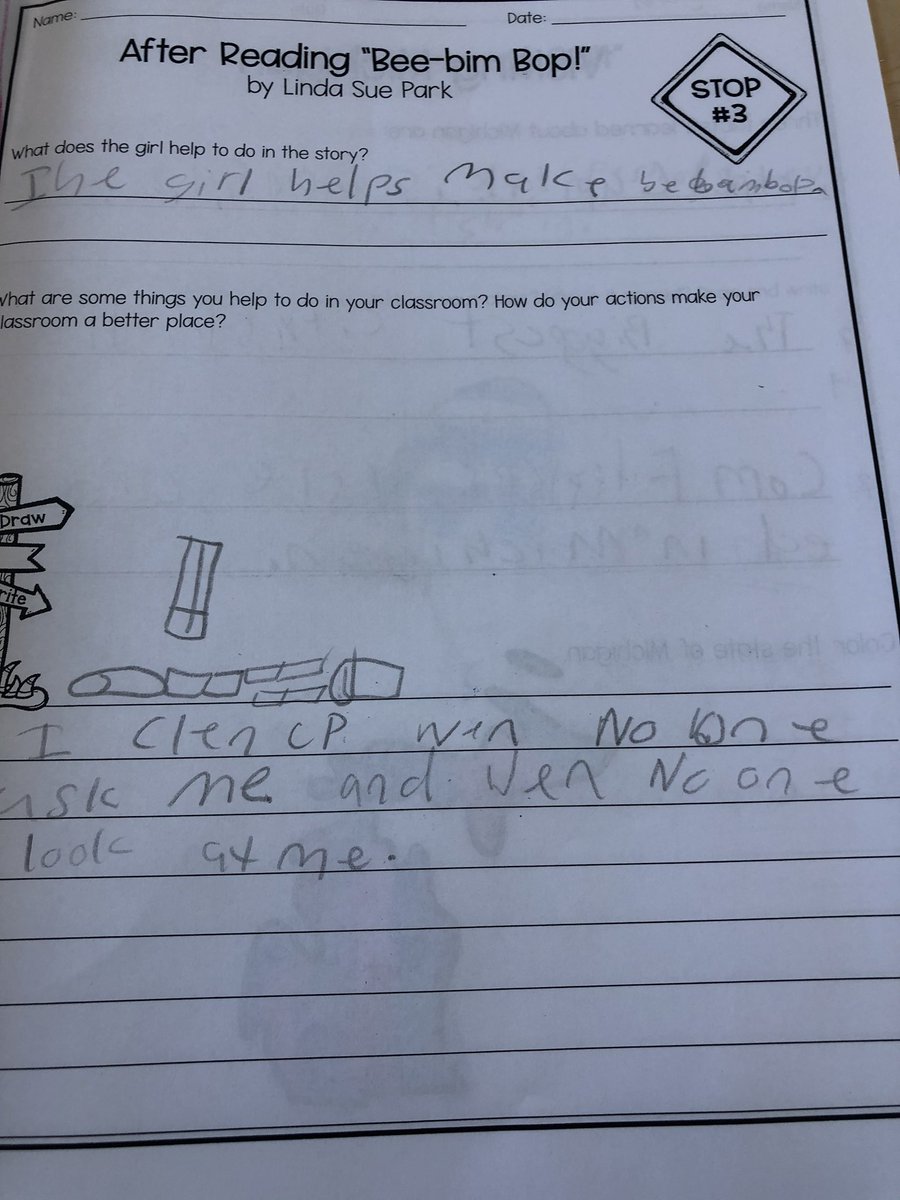 Name: Date:
After Reading "Bee-bim Bop!"
by Linda Sue Park
STOP
#3
What does the girl help to do in the story?
The girl helps make bebambop.
What are some things you help to do in your classroom? How do your actions make your
lassroom a better place?
Draw
rite
I Clen CP wen No one
ask me and wen No one
look at me.